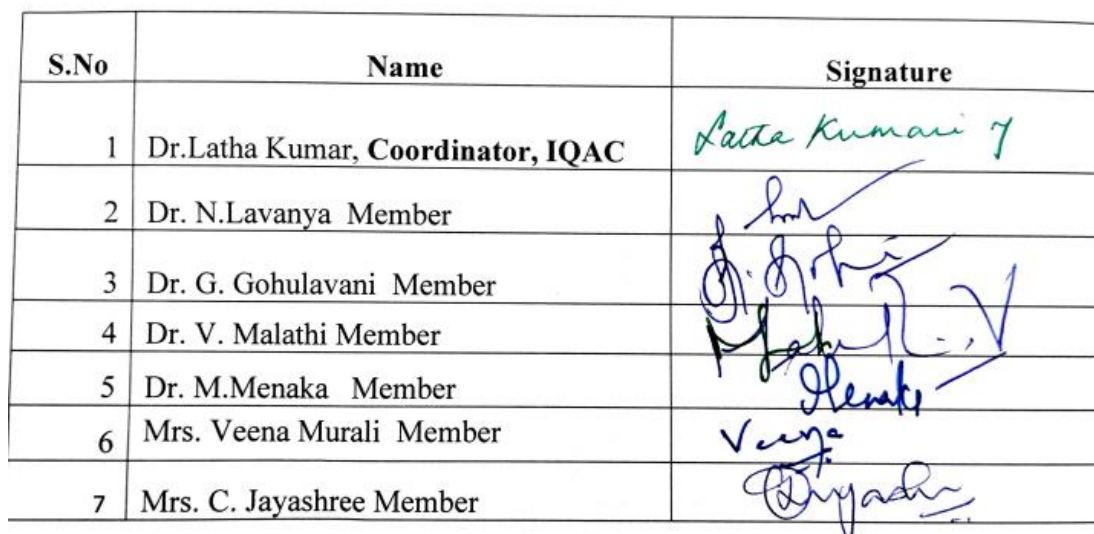 S.No Name Signature
1 Dr.Latha Kumar, Coordinator, IQAC Latha Kumari Y
2 Dr. N.Lavanya Member
3 Dr. G. Gohulavani Member
4 Dr. V. Malathi Member
5 Dr. M.Menaka Member Menaka
6 Mrs. Veena Murali Member Veena
7 Mrs. C. Jayashree Member